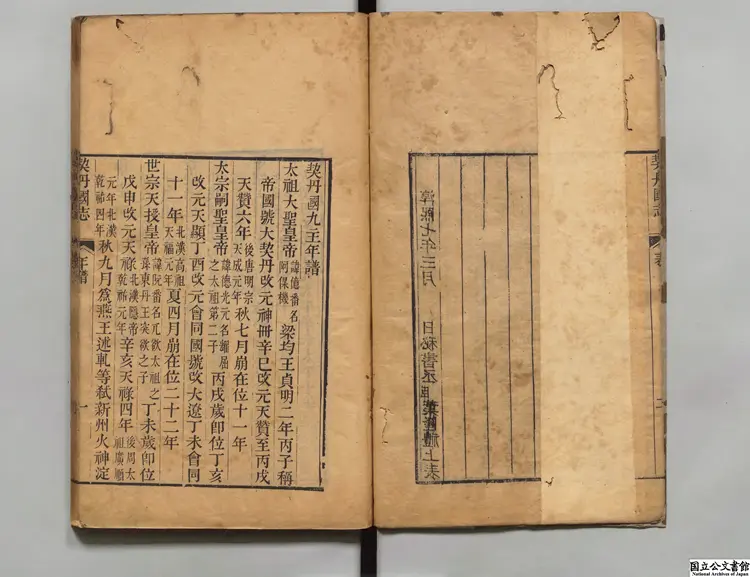 契丹國志
表
淳熙七年三月 日秘書丞臣葉隆禮上表
契丹國九主年譜
太祖大聖皇帝諱億番名阿保機梁均王貞明二年丙子稱
帝國號大契丹改元神冊辛巳改元天贊至丙戌
天贊六年後唐明宗天成元年秋七月崩在位十一年
太宗嗣聖皇帝諱德光元名耀屈之太祖第二子丙戌歲卽位丁亥
改元天顯丁酉改元會同國號改大遼丁未會同
十一年北漢高祖天福元年夏四月崩在位二十二年
世宗天授皇帝諱阮番名兀欲太祖之孫東丹王突欲之子丁未歲卽位
戊申改元天祿北漢隱帝乾祐元年辛亥天祿四年後周太祖廣順
元年北漢乾祐四年秋九月爲燕王述軋等弒新州火神淀
契丹國志
年譜
一
国立公文書館
National Archives of Japan